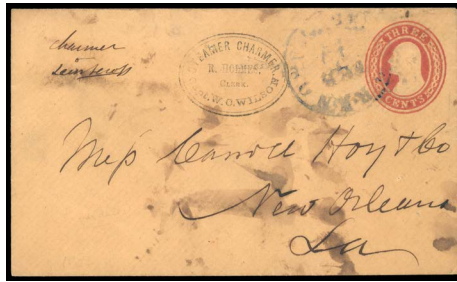 Charmer
STEAMER CHARMER.
R. HOLMES,
CLERK.
W. O. WILSON
THREE
CENTS
Mess Carroll Hoy & Co
New Orleans
La